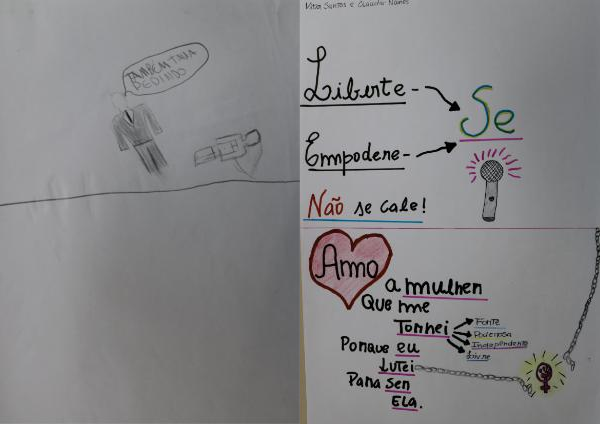 TAMBEM TAVA
PEDINDO
Santos e
Liberte-
Se
Empodere-
Não se cale!
Amo
a mulher
Que me
Tornei
Forte
Poderosa
Independente
Livre
Porque eu
Lutei
Para ser
Ela.